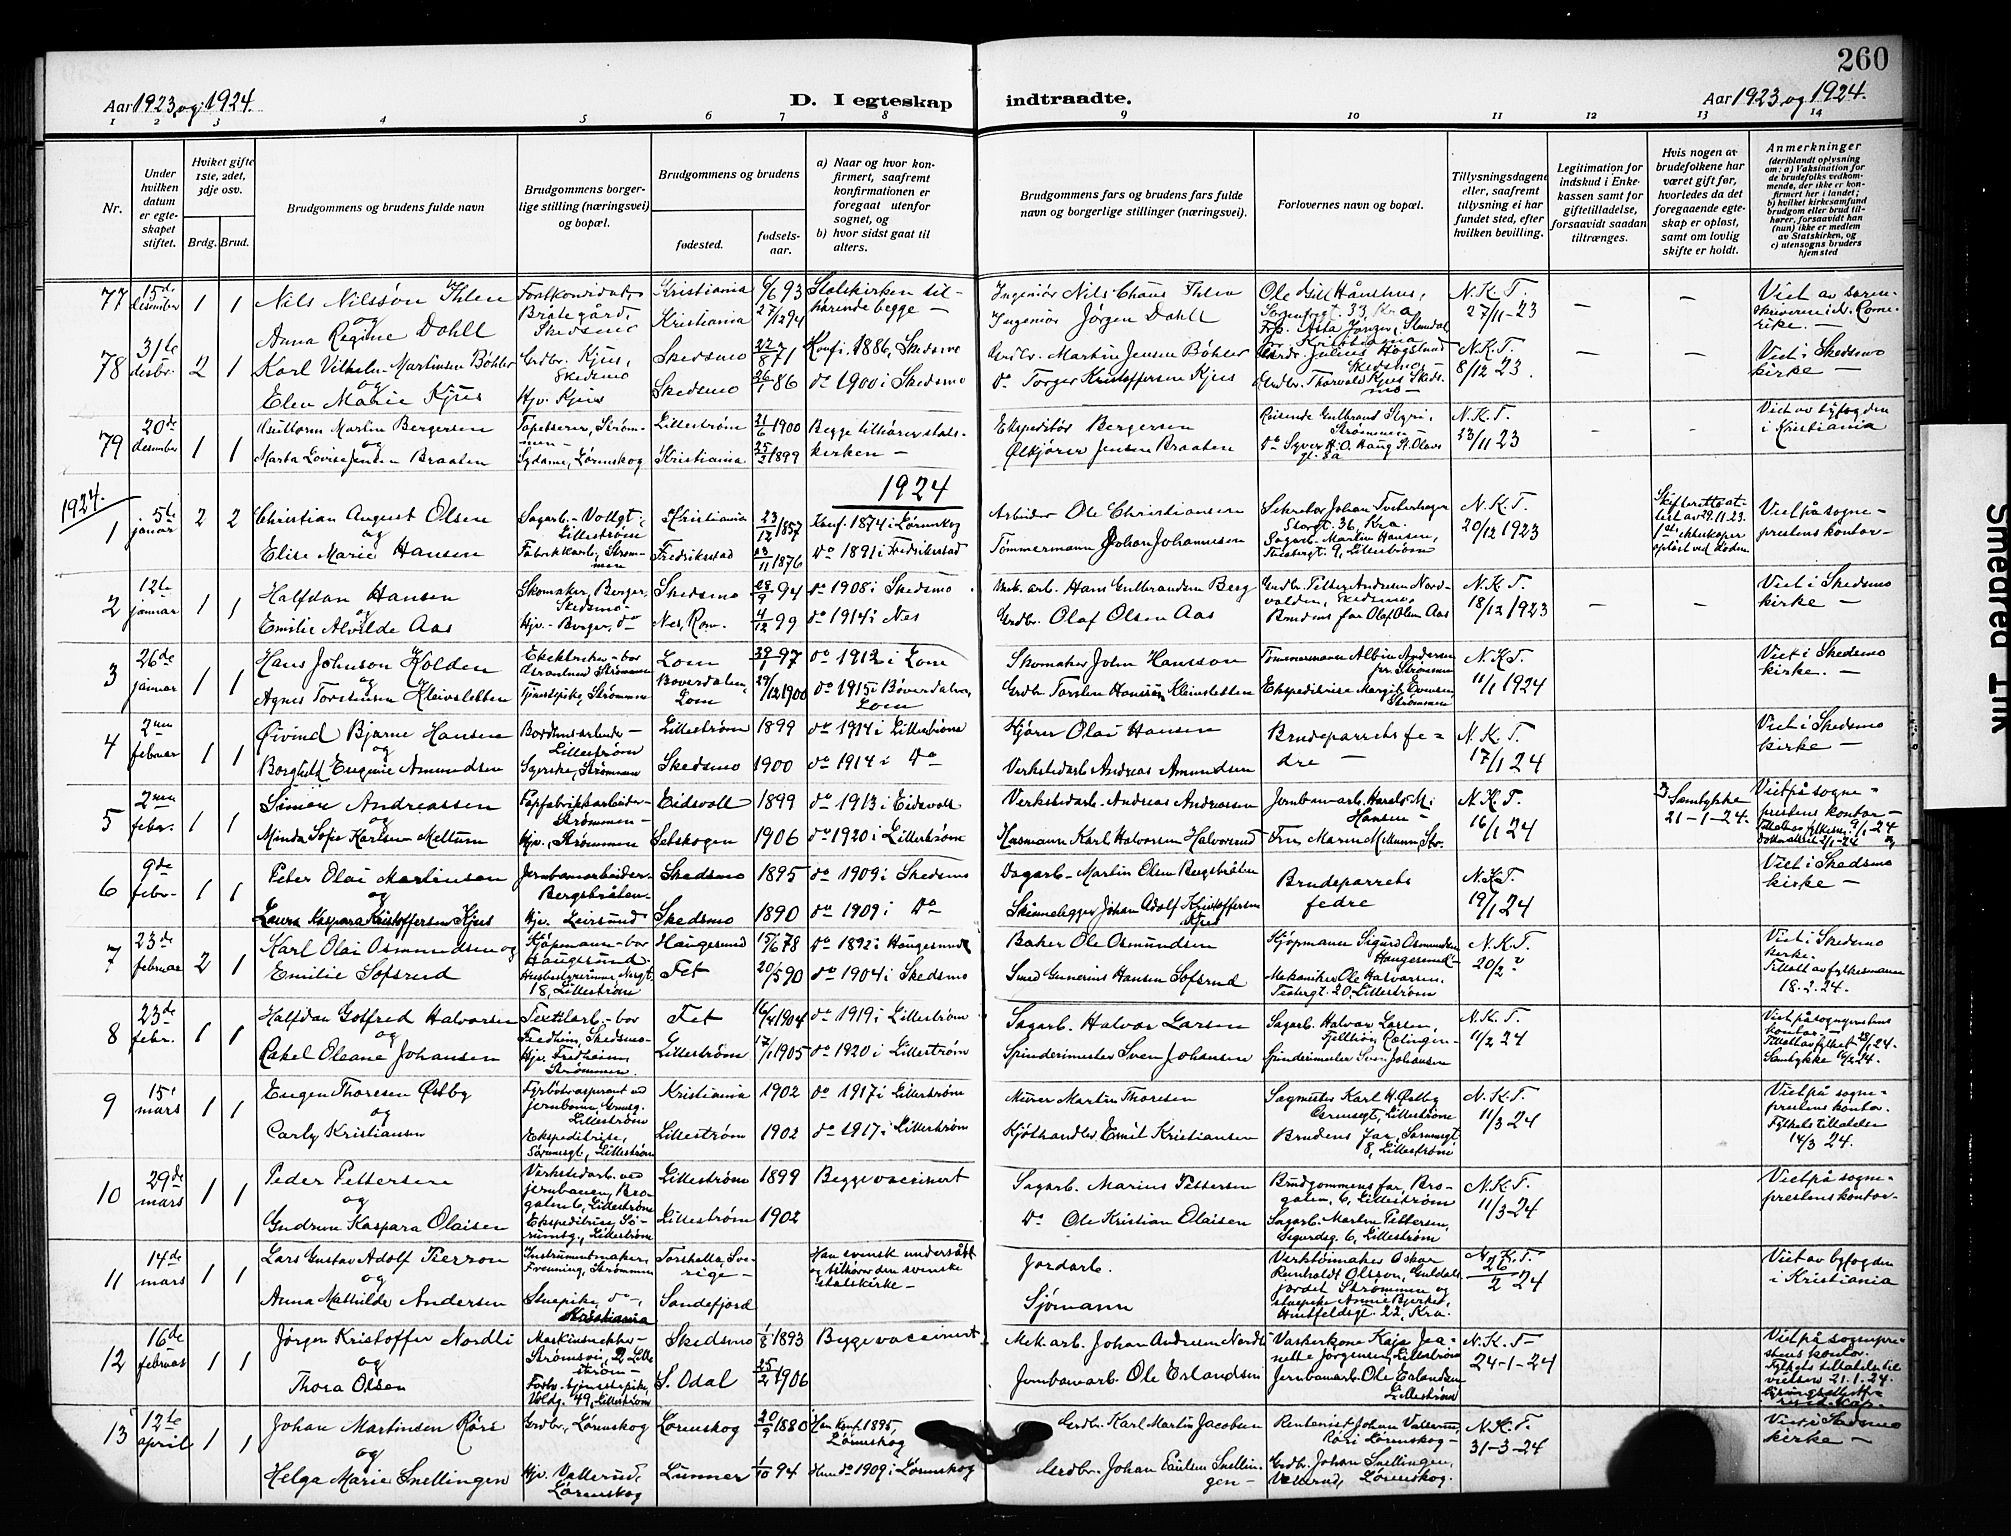 260
Aar 1923 og 1924.
D. I egteskap indtraadte.
Aar 1923 og 1924.
1 2 3 4 5 6 7 8 9 10 11 12 13 14
Nr.
Under hvilken datum er egteskapet stiftet.
Hvilket gifte 1ste, 2det, 3dje osv.
Brdg. Brud.
Brudgommens og brudens fulde navn
Brudgommens borgerlige stilling (næringsvei) og bopæl.
Brudgommens og brudens
fødested.
fødselsaar.
a) Naar og hvor konfirmert, saafremt konfirmationen er foregaat utenfor sognet, og
b) hvor sidst gaat til alters.
Brudgommens fars og brudens fars fulde navn og borgerlige stillinger (næringsvei).
Forlovernes navn og bopæl.
Tillysningsdagene eller, saafremt tillysning ei har fundet sted, efter hvilken bevilling.
Legitimation for indskud i Enkekassen samt for giftetilladelse, forsaavidt saadan tiltrænges.
Hvis nogen av brudefolkene har været gift før, hvorledes da det foregaaende egteskap er opløst, samt om lovlig skifte er holdt.
Anmerkninger
(deriblandt oplysning om: a) Vaksination for de brudefolks vedkommende, der ikke er konfirmert her i landet;
b) hvilket kirkesamfund brudgom eller brud tilhører, forsaavidt han (hun) ikke er medlem av Statskirken, og
c) utensogns bruders hjemsted
77 15de desember 1 1 Nils Nilssøn Ihlen og Anna Regine Dahll
Skedsmo
Kristiania 6/6 93
Kristiania 27/12 94
Statskirken tilhørende begge
Ingeniør Nils Claus Ihlen
Ingeniør Jørgen Dahll
N.K.T. 27/11-23
78 31te desbr. 2 1 Karl Vilhelm Martinsen Bøhler og Elen Marie Kjus
Grdbr. Kjus, Skedsmo
Hjv. Kjus
Skedsmo 22/8 71
Skedsmo 26/1 86
Konf. 1886, Skedsmo
do 1900 i Skedsmo
Grdbr. Martin Jensen Bøhler
do Torger Kristoffersen Kjus
Grdbr. Thorvald Kjus Skedsmo
N.K.T. 8/12 23.
Viet i Skedsmo kirke
79 20de desember 1 1 Guttorm Martin Bergersen og Marta Lovise Jensen Braaten
Tapetserer, Strømmen
Sydame, Lørenskog
Lillestrøm 21/6 1900
Kristiania 25/3 1899
Begge tilhører statskirken
Ekspeditør Bergersen
Ølkjører Jensen Braaten
N.K.T. 23/11 23
Viet av byfogden i Kristiania
1924
1924.
1 5te januar 2 2 Christian August Olsen og Elise Marie Hansen
Lillestrøm
Fabrikkarb., Strømmen
Kristiania 23/12 1857
Fredrikstad 23/11 1876
Konf. 1874 i Lørenskog
do 1891 i Fredrikstad
Arbeider Ole Christiansen
Tømmermann Johan Johannesen
Storgt. 36, Kra.
Sagarb. Martin Hansen, Lillestrøm
N.K.T. 20/12 1923
Skifterettsattest av 29.11.23. 1ste ekteskaper opløst ved døden
Viet på sogneprestens kontor
2 12te januar 1 1 Halfdan Hansen og Emilie Alvilde Aas
Skomaker, Berger, Skedsmo
Hjv. Berger, do
Skedsmo 28/9 94
Nes, Rom. 4/12 99
do 1908 i Skedsmo
do 1914 i Nes
Hans Gulbrandsen Berg
Grdbr. Olaf Olsen Aas
Brudens far Olaf Olsen Aas
N.K.T. 18/12 1923
Viet i Skedsmo kirke
3 26de januar 1 1 Hans Johnson Kolden og Agnes Torstensen Kleivsletten
Tjenstpike, Strømmen
Lom 29/1 97
Bøverdalen, Lom 29/12 1900
do 1912 i Lom
do 1915 i Bøverdalen, Lom
Skomaker John Hansson
Grdbr. Torsten Hanssen Kleivsletten
Tømmermann Albin Andersen pr. Strømmen
Ekspeditrise Margit Evensen Strømmen
N.K.T. 11/1 1924
Viet i Skedsmo kirke.
4 2nen februar 1 1 Øivind Bjarne Hansen og Borghild Eugenie Amundsen
Lillestrøm
Syerske, Strømmen
Lillestrøm 1899
Skedsmo 1900
do 1914 i Lillestrøm
do 1914 i Do
Kjører Olai Hansen
Verkstedarb. Andreas Amundsen
Brudeparrets fedre
N.K.T. 17/1 24
Viet i Skedsmo kirke
5 2nen febr. 1 1 Simen Andreassen og Minda Sofie Karlsen Mellum
Papfabrikkarbeider Strømmen
Hjv. Strømmen
Eidsvoll 1899
Setskogen 1906
do 1913 i Eidsvoll
do 1920 i Lillestrøm
Verkstedarb. Andreas Andreassen
Husmann Karl Halvorsen Halvorsrud
Jernbanearb. Harald M. Hansen
N.K.T. 16/1 24
Samtykke 21-1-24.
Viet på sogneprestens kontor
6 9de febr. 1 1 Peter Olai Martinsen og Laura Kaspara Kristoffersen Kjus
Jernbanearbeider Bergsbråten
Hjv. Leirsund
Skedsmo 1895
Skedsmo 1890
do 1909 i Skedsmo
do 1909 i Do
Dagarb. Martin Olsen Bergsbråten
Skinnelegger Johan Adolf Kristoffersen Kjus
Brudeparrets fedre
N.K.T. 19/1 24
Viet i Skedsmo kirke
7 23de februar 2 1 Karl Olai Osmundsen og Emilie Sofsrud
Kjøpmann bor Haugesund.
Husbestyrerinne, 18, Lillestrøm
Haugesund 15/6 78
Fet 20/5 90
do 1892 i Haugesund
do 1904 i Skedsmo
Baker Ole Osmundsen
Smed Gunerius Hansen Sofsrud
Kjøpmann Sigurd Osmundsen Haugesund
Mekaniker Ole Halvorsen, Teatergt. 20, Lillestrøm
N.K.T. 20/2 ?
Viet i Skedsmo kirke. Tillatt av fylkesmann 18.2.24.
8 23de febr. 1 1 Halfdan Gotfred Halvorsen og Rakel Oleane Johansen
Textilarb. bor Fredheim, Skedsmo
Hjv. Fredheim, Strømmen
Fet 16/4 1904
Lillestrøm 17/1 1905
do 1919 i Lillestrøm
do 1920 i Lillestrøm
Sagarb. Halvar Larsen
Spinderimester Sven Johansen
Sagarb. Halvar Larsen,
Spinderimester Sven Johansen
N.K.T. 11/2 24
Viet på sogneprestens kontor.
9 15. mars 1 1 Eugen Thoresen Østby og Carly Kristiansen
Fyrbøteraspirant ved jernbanen, Lillestrøm
Ekspeditrise, Lillestrøm
Kristiania 1902
Lillestrøm 1902
do 1917 i Lillestrøm
do 1917 i Lillestrøm
Murer Martin Thoresen
Kjøthandler Emil Kristiansen
Sagmester Karl H. Østby Lillestrøm
Brudens far, 8, Lillestrøm
N.K.T. 11/3 24
Viet på sogneprestens kontor. Fylkets tillatelse 14/3 24.
10 29de mars 1 1 Peder Pettersen og Gudrun Kaspara Olaisen
Verkstedarb. ved jernbanen, Brogaten 6, Lillestrøm
Ekspeditrise, Lillestrøm
Lillestrøm 1899
Lillestrøm 1902
Begge vaccinert
Sagarb. Marius Pettersen
Do Ole Kristian Olaisen
Brudgommens far, Brogaten, 6, Lillestrøm
Sagarb. Martin Pettersen, Sigurdsg. 6, Lillestrøm
N.K.T. 11/3-24
Viet på sogneprestens kontor
11 14de mars 1 1 Lars Gustav Adolf Pierrou og Anna Mathilde Andersen
Instrumentmaker, Strømmen
Stuepike, do, Kristiania
Torshella, Sverige
Sandefjord
Han svensk undersått og tilhører den svenske statskirke
Jordarb.
Sjømann
N.K.T. 26/2 24
Viet av byfogden i Kristiania
12 16de februar 1 1 Jørgen Kristoffer Nordli og Thora Olsen
Lillestrøm
Voldg. 49, Lillestrøm
Skedsmo 1/8 1893
S. Odal 25/2 1906
Begge vaccinert
Mek. arb. Johan Andersen Nordli
Jernbanearb. Ole Erlandsen
Vaskerkone Kaja Jeanette Jørgensen, Lillestrøm
Jernbanearb. Ole Erlandsen Lillestrøm
N.K.T. 24-1-24
Viet på sogneprestens kontor. Fylkets tillatelse til vielsen 21.1.24.
13 12te april 1 1 Johan Martinsen Røri og Helga Marie Snellingen
Grdbr., Lørenskog
Hjv. Vallerud, Lørenskog
Lørenskog 20/9 1880
Lunner 1/10 94
Han konf. 1895, Lørenskog
Hun do 1909 i Lørenskog
Grdbr. Karl Martin Jacobsen
Grdbr. Johan Paulsen Snellingen
Rentenist Johan Vallerud, Røri Lørenskog
Grdbr. Johan Snellingen, Vallerud, Lørenskog.
N.K.T. 31-3-24
Viet i Skedsmo kirke
Smeared Ink